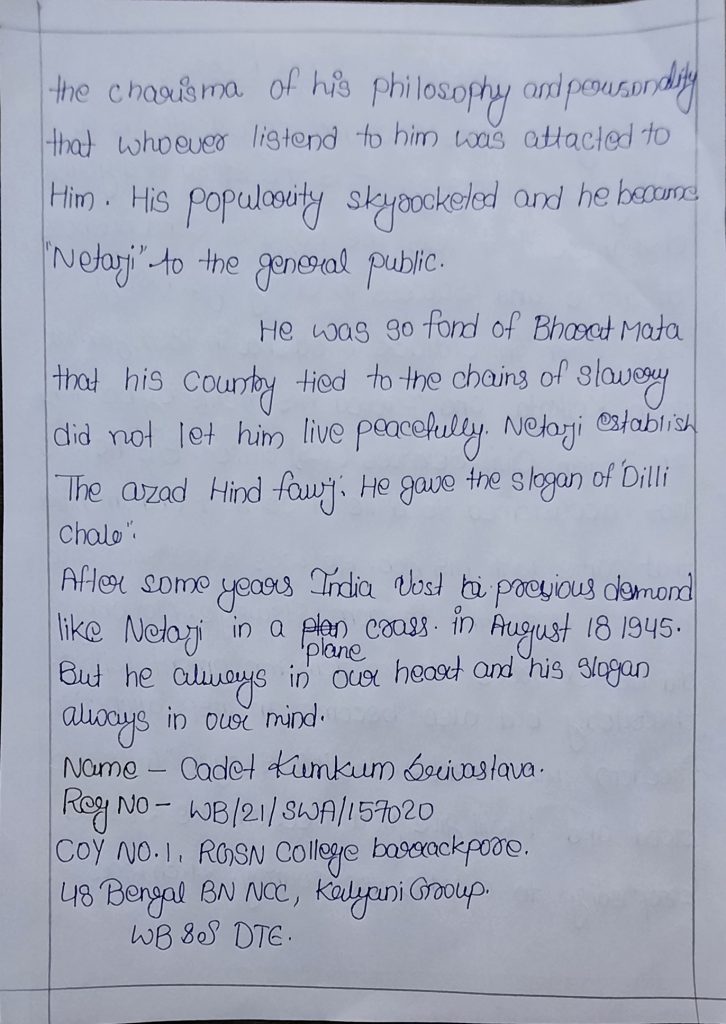 the charisma of his philosophy and personality
that whoever listend to him was attacted to
Him. His popularity skyrocketed and he became
"Netaji" to the general public.
He was so fond of Bharat Mata
that his country tied to the chains of slavery
did not let him live peacefully. Netaji establish
The azad Hind fauj. He gave the slogan of "Dilli
Chalo".
After some years India lost precious demond
like Netaji in a plane crass. in August 18 1945.
But he always in our heart and his slogan
always in our mind.
Name - Cadet Kumkum Srivastava.
Reg No - WB/21/SWA/157020
COY NO.1, RGSN College barrackpore.
48 Bengal BN NCC, Kalyani Group.
WB & S DTE.